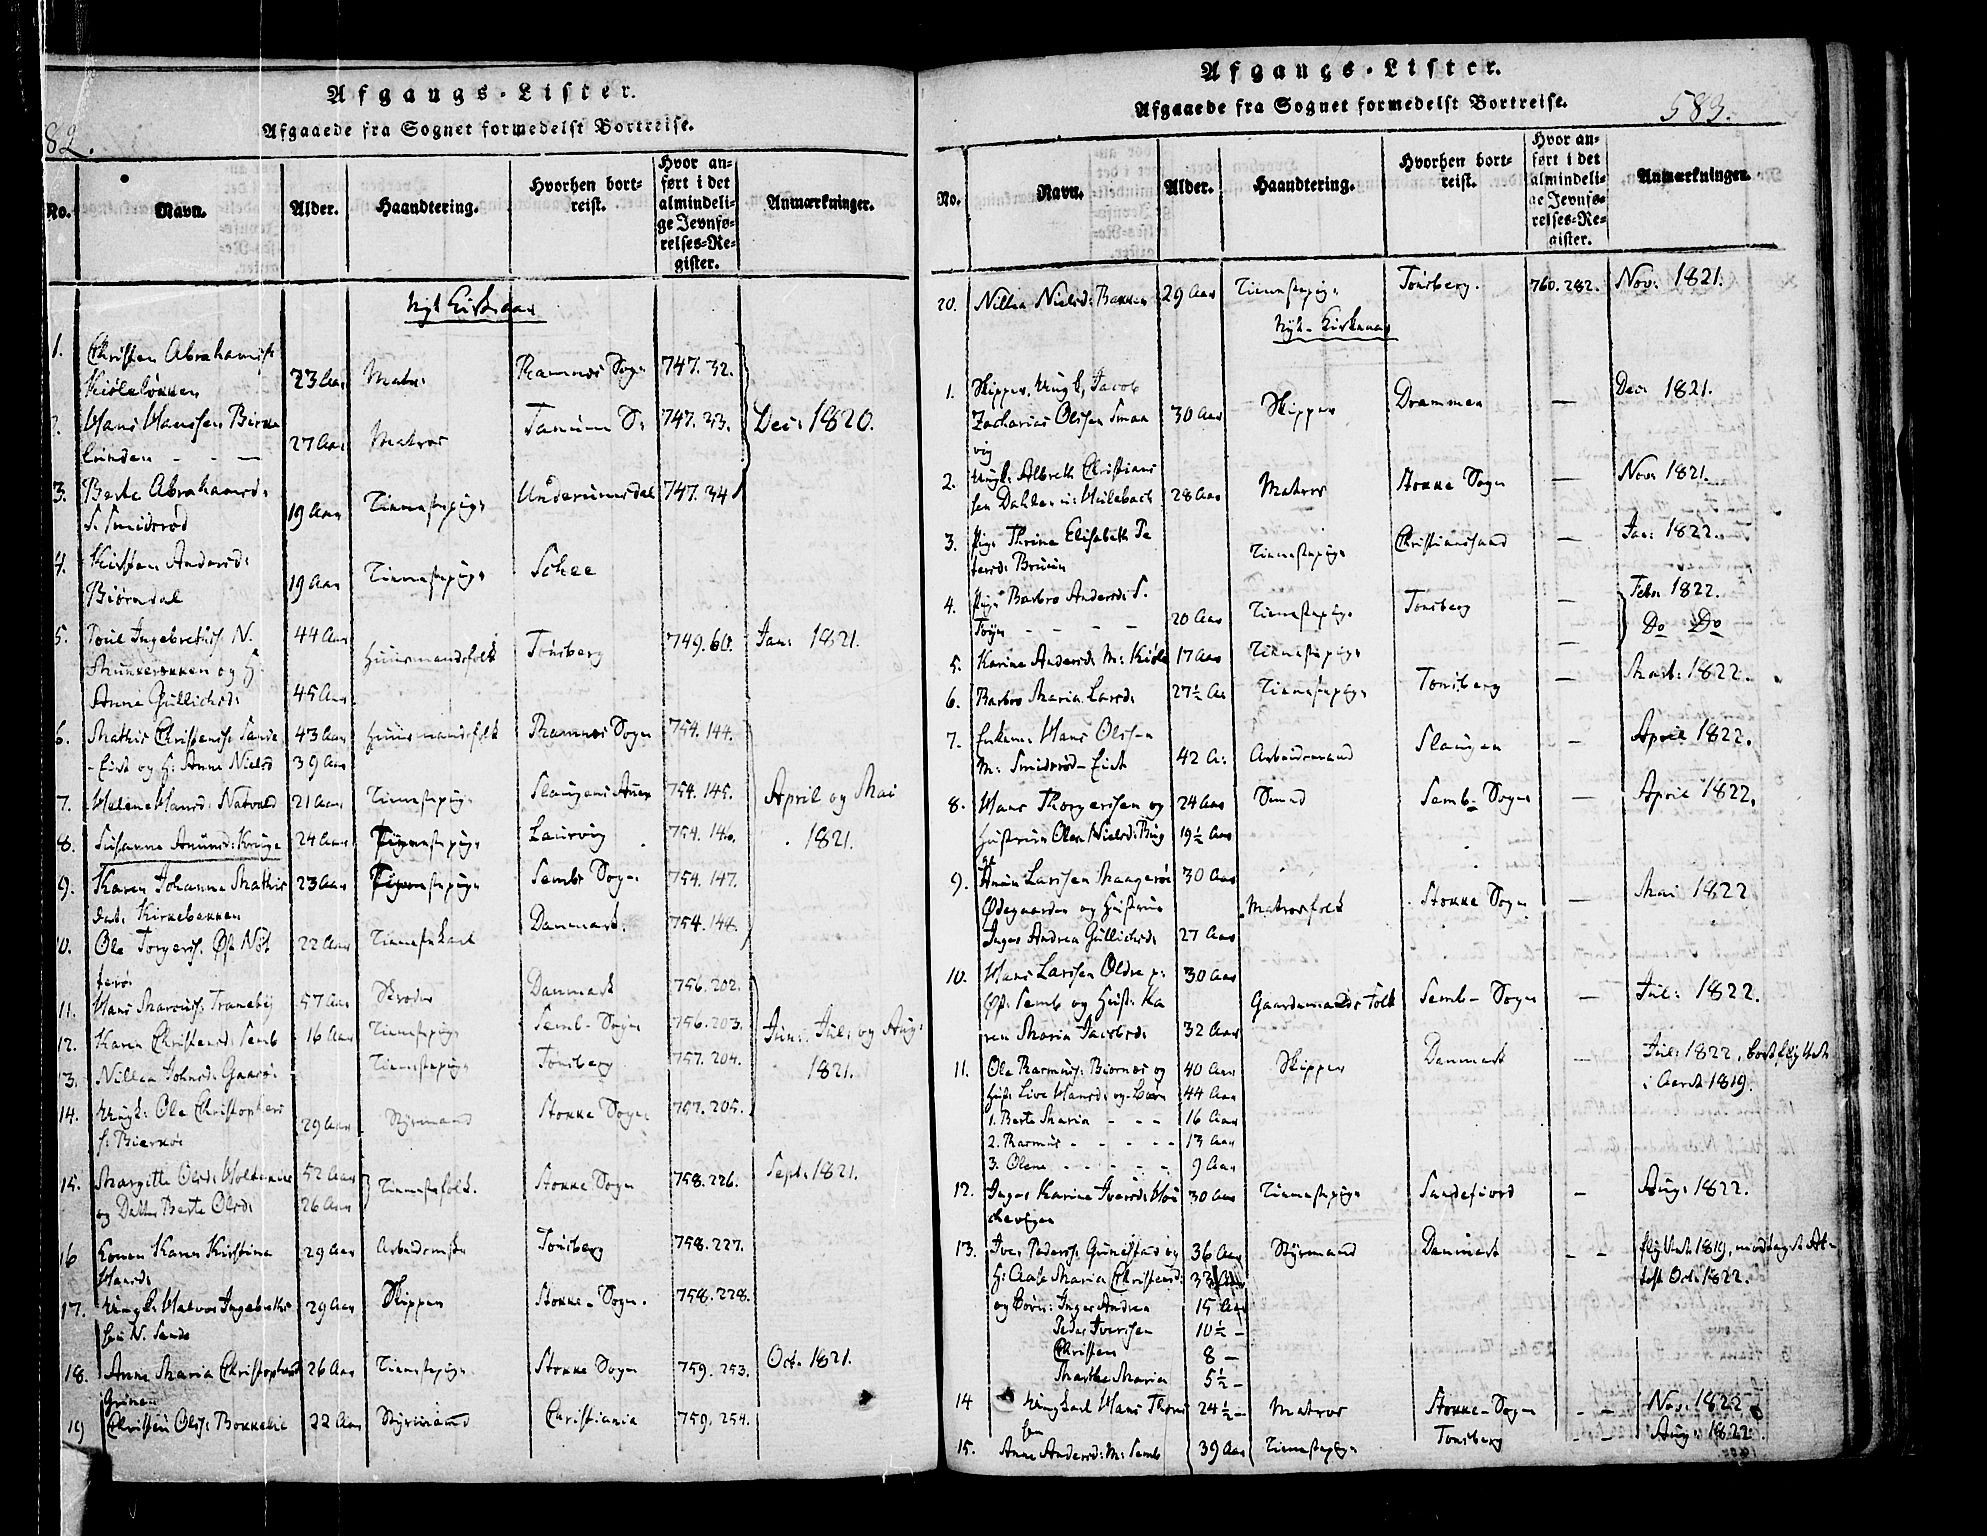 82.
Afgangs-Lister.
Afgaaede fra Sognet formedelst Bortreise.
No. Navn. Alder. Haandtering. Hvorhen bortreist. Hvor anført i det almindelige Jevnførelses-Register. Anmærkninger.
Nyt Kirkeaar
1. Christen Abrahams:
23 Aar Matr: Ramnes Sogn 747. 32.
2. Hans Hanssen Birke
linden - - - 27 Aar Matros Tanum S: 747. 33. Dec: 1820.
3. Berte Abrahamsd:
S. Smidsrød 19 Aar Tienestepige Underumsdal 747. 34
4. Kirsten Andersd:
Biørndal 19 Aar Tienestepige Schee
5. Poul Ingebretss. N. 44 Aar
og H: Huusmandsfolk Tönsberg 749. 60. Jan: 1821.
Anne Gullichsd: 45 Aar
6. Mathis Christenss. Sande 43 Aar Huusmandsfolk Ramnes Sogn 754. 144.
-Eiet og H: Anne Nielsd 39 Aar
7. Helene Hansd: Natvold 21 Aar Tienestepige Slaugens 754. 145. April og Mai
8. Susanne Amunds: 24 Aar Tienestepige Laurvig 754. 146. 1821.
9. Karen Johanne Mathis 23 Aar Tienestepige Sembs Sogn 754. 147.
dat: Kirkebakken
10. Ole Torgerss. Øst Nöt 22 Aar Tienestekarl Danmark. 754. 144.
terö.
11. Hans Traneby 57 Aar Skreder Danmark 756. 202.
12. Karen Christensd: Semb 16 Aar Tienestepige Semb-Sogn 756. 203. Jun: Jul: og Aug:
13. Nillea Johnsd: Gaasö: Tienestepige Tönsberg 757. 204. 1821.
14. Ungk: Ole Christophers
s: 29 Aar Styrmand Stokke Sogn 757. 205.
15. Margitte Olsd: 52 Aar Tienestefolk. Stokke Sogn 758. 226. Sept: 1821.
og Datter Berte Olsd: 26 Aar
16 Konen Karen Kirstine 29 Aar Tönsberg 758. 227.
Hansd:
17. Ungk: Halvor Ingebreths 29 Aar Skipper Stokke-Sogn. 758. 228.
sen N. Sande
18. Anne Maria Christophersd 26 Aar Tienestepige Stokke Sogn 759. 253. Oct. 1821.
19 Christen Olss: 22 Aar Styrmand Christiania 759. 254.
Afgangs-Lister.
Afgaaede fra Sognet formedelst Bortreise.
583.
No. Navn. Alder. Haandtering. Hvorhen bortreist. Hvor anført i det almindelige Jevnførelses-Register. Anmærkninger.
20. Nillea Nielsd: Bakken 29 Aar Tienestepige Tönsberg. 760. 282. Nov: 1821.
Nyt-Kirkeaar
1. Skipper, Ungk, Jacob
Zacharias Olssen Smaa 30 Aar Skipper Drammen - Dec: 1821.
vig
2. Ungk: Albreth Christians
sen Dahlen i: 28 Aar Matros Stokke Sogn - Nov: 1821.
3. Pige Thrine Elisabeth Pe
tersd: Bruun Tienestepige Christianssand - Jan: 1822.
4. Pige Barbro Andersd: S.
- - - 20 Aar Tienestepige Tönsberg - Febr: 1822.
5. Karine Andersd: M: Kiøle 17 Aar Tienestepige - Do Do
6. Barbro Maria Larsd: 27½ Aar Tienestepige Tönsberg - Mart: 1822.
7. Enkem: Hans Olssen
M: Smidsrød-Eiet 42 A: Arbeidsmand Slaugen - April 1822.
8. Hans Thorgerssen og 24 Aar Smed Semb-Sogn - April 1822.
Hustrue Olea Nielsd: 19½ Aar
9. Larssen Maagerøe 30 Aar
Ødegaarden og Hustrue Matrosfolk Stokke Sogn - Mai 1822
Inger Andrea Gullichsd: 27 Aar
10. Hans Larssen Oldre p: 30 Aar
Øst: Semb og Hust: Ka Gaardemands Folk Semb-Sogn - Jul: 1822.
ren Maria Jacobsd: 32 Aar
11. Ole Rasmuss: Biørnes og 40 Aar Skipper Danmark - Jul: 1822, bortflyttet
Hust: Live Hansd: og Børn 44 Aar i Aaret 1819.
1. Berte Maria - - - 16 Aar
2. Rasmus - - - - 13 Aar
3. Olene - - - - 9 Aar
12. Inger Karine Iversd: 30 Aar Tienestepige Sandefiord - Aug: 1822.
13. Iver Pederss. Gunestad og 36 Aar Styrmand Danmark - - flyttet 1819, modtaget At-
H: Aase Maria Christensd: 33 Aar test Oct: 1822.
og Børn: Inger Andrea 15 Aar
Peder Iverssen 10½ -
Christen 8 -
Marthe Maria 5½ -
14 Ungkarl Hans Thors 24½ - Matros Stokke-Sogn - - Nov: 1822
sen
15. Anne Andersd: M: Semb 39 Aar Tienestepige Tönsberg - - Aug: 1822.